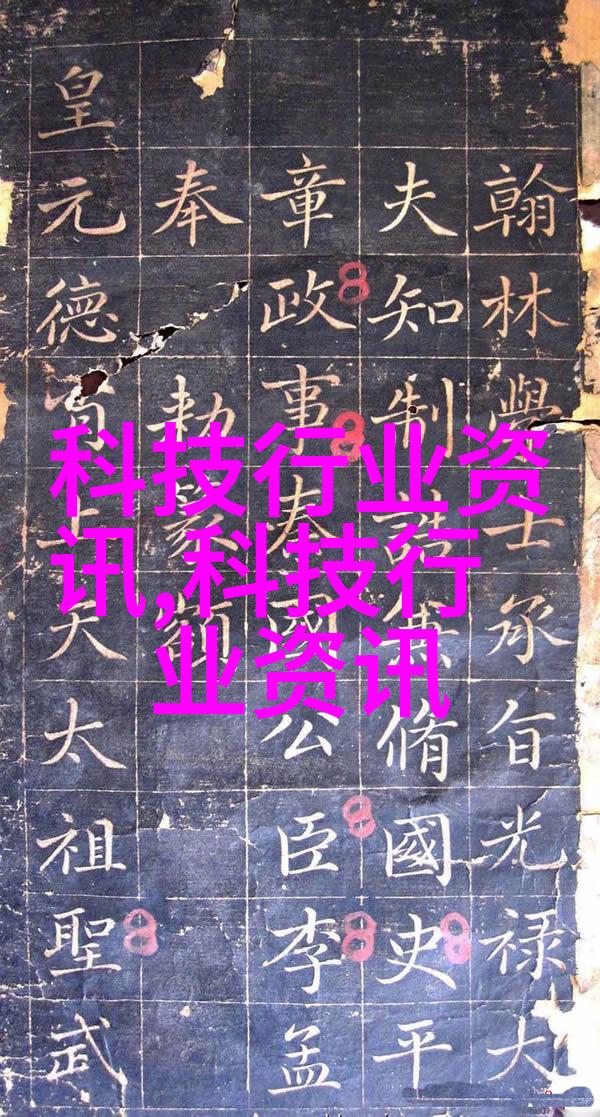 科技行业资
讯,科技行
业资讯
翰林學士承旨光禄大
夫知制誥兼脩國史平
章政事秦國公臣李孟
奉勅篆額
皇元德上天太祖聖武